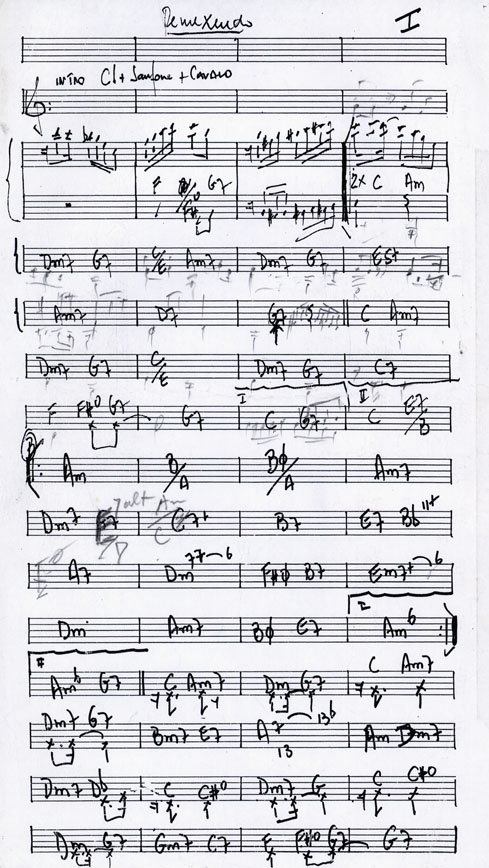 Remexendo I
INTRO Cl + Sanfona + Cavaco
F F#o G7 2x C Am
Dm7 G7 C/E Am7 Dm7 G7 E5+
Am7 D7 G7 C Am7
Dm7 G7 C/E Dm7 G7 C7
I II
F F#o G7 G7 C G7 C E7/B
B
Am B/A Bø/A Am7
Dm7 E7 7alt Am/C C7+ B7 E7 Bb11+
A7 Dm 77 6 F#ø B7 Em7+ 6
I
Dm Am7 Bø E7 Am6
II
Am6 G7 C Am7 Dm G7 C Am7
Dm7 G7 Bm7 E7 A7 13 13b Am Dm7
Dm7 Db C C#o Dm7 G C C#o
Dm7 G7 Gm7 C7 F F#o G7 G7